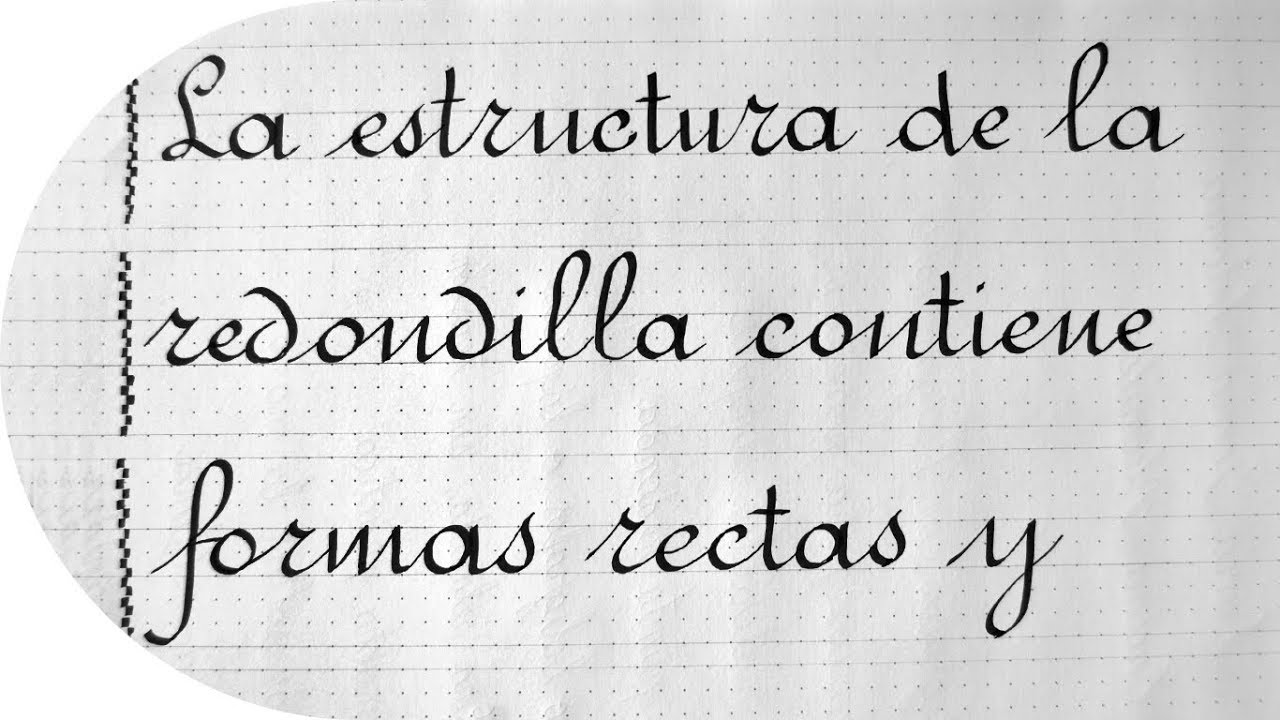 La estructura de la
redondilla contiene
formas rectas y